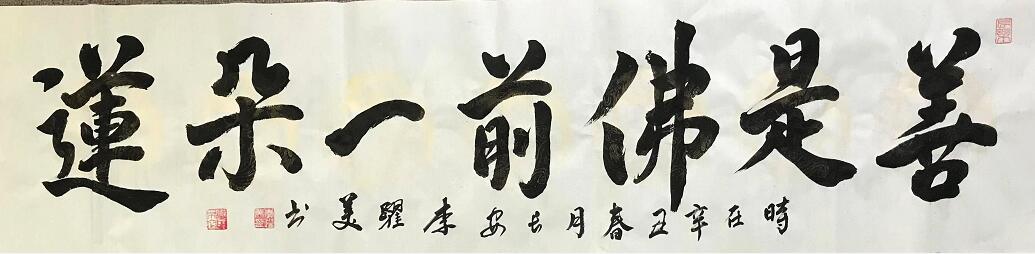 善是佛前一朵蓮
時在辛丑春月长安李耀美书